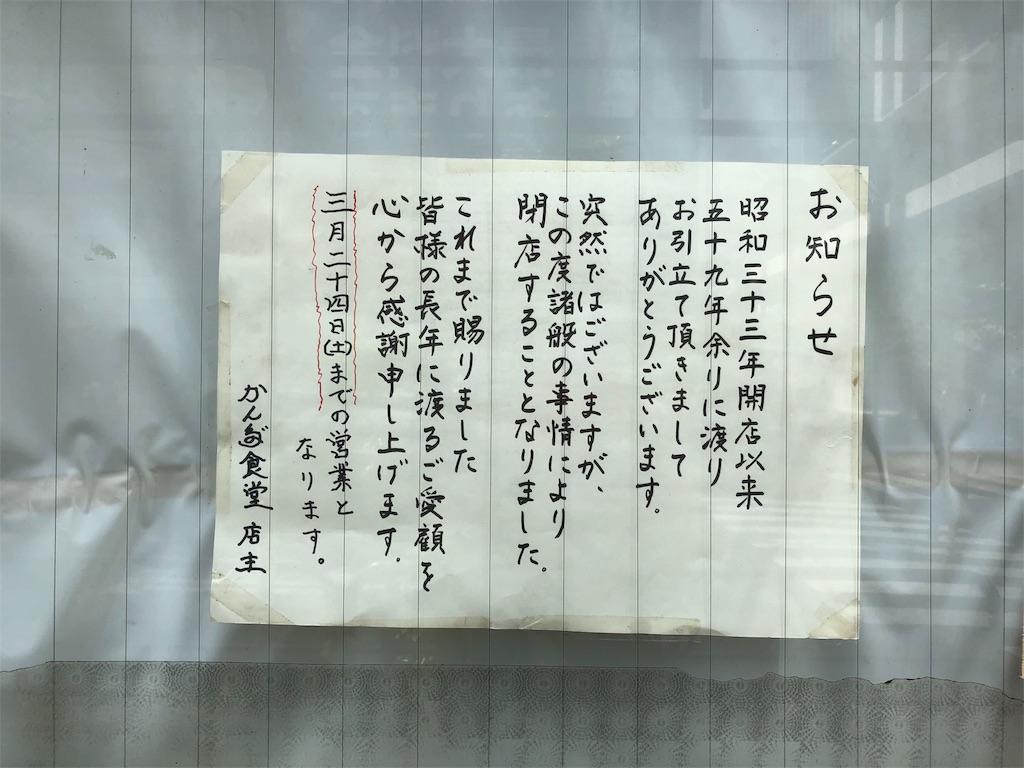 お知らせ
昭和三十三年開店以来
五十九年余りに渡り
お引立て頂きまして
ありがとうございます。
突然ではございますが、
この度諸般の事情により
閉店することとなりました。
これまで賜りました
皆様の長年に渡るご愛顧を
心から感謝申し上げます。
三月二十四日(土)までの営業と
なります。
かんだ食堂 店主